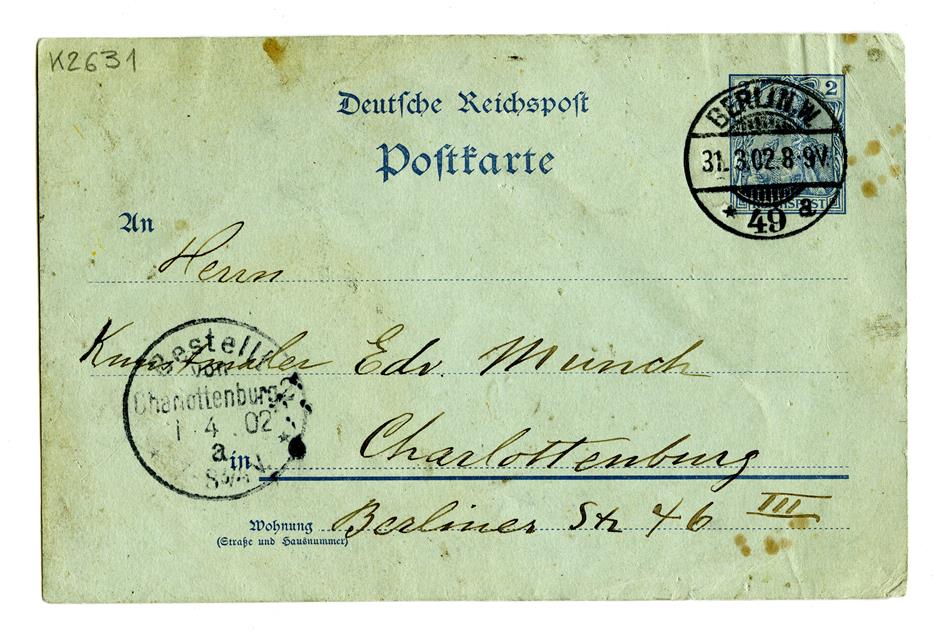 K2631
Deutsche Reichspost
Postkarte
2
BERLIN.W.
31. 3.02.8-9V.
* 49 a
REICHSPOST
An
Herrn
Kunstmaler Edv. Munch
Bestellt
von
Charlottenburg 2
1 4 02
a
in Charlottenburg
Wohnung Berliner Str 46 III
(Straße und Hausnummer)